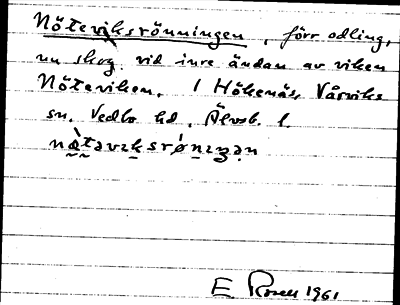 Nöteviksrönningen, förr odling,
nu skog vid inre ändan av viken
Nöteviken. / Hökenäs, Vårviks
sn. Vedbo hd. Älvsb. l.
nø̀tavɪksrǿnɪŋən
E Rosell 1961